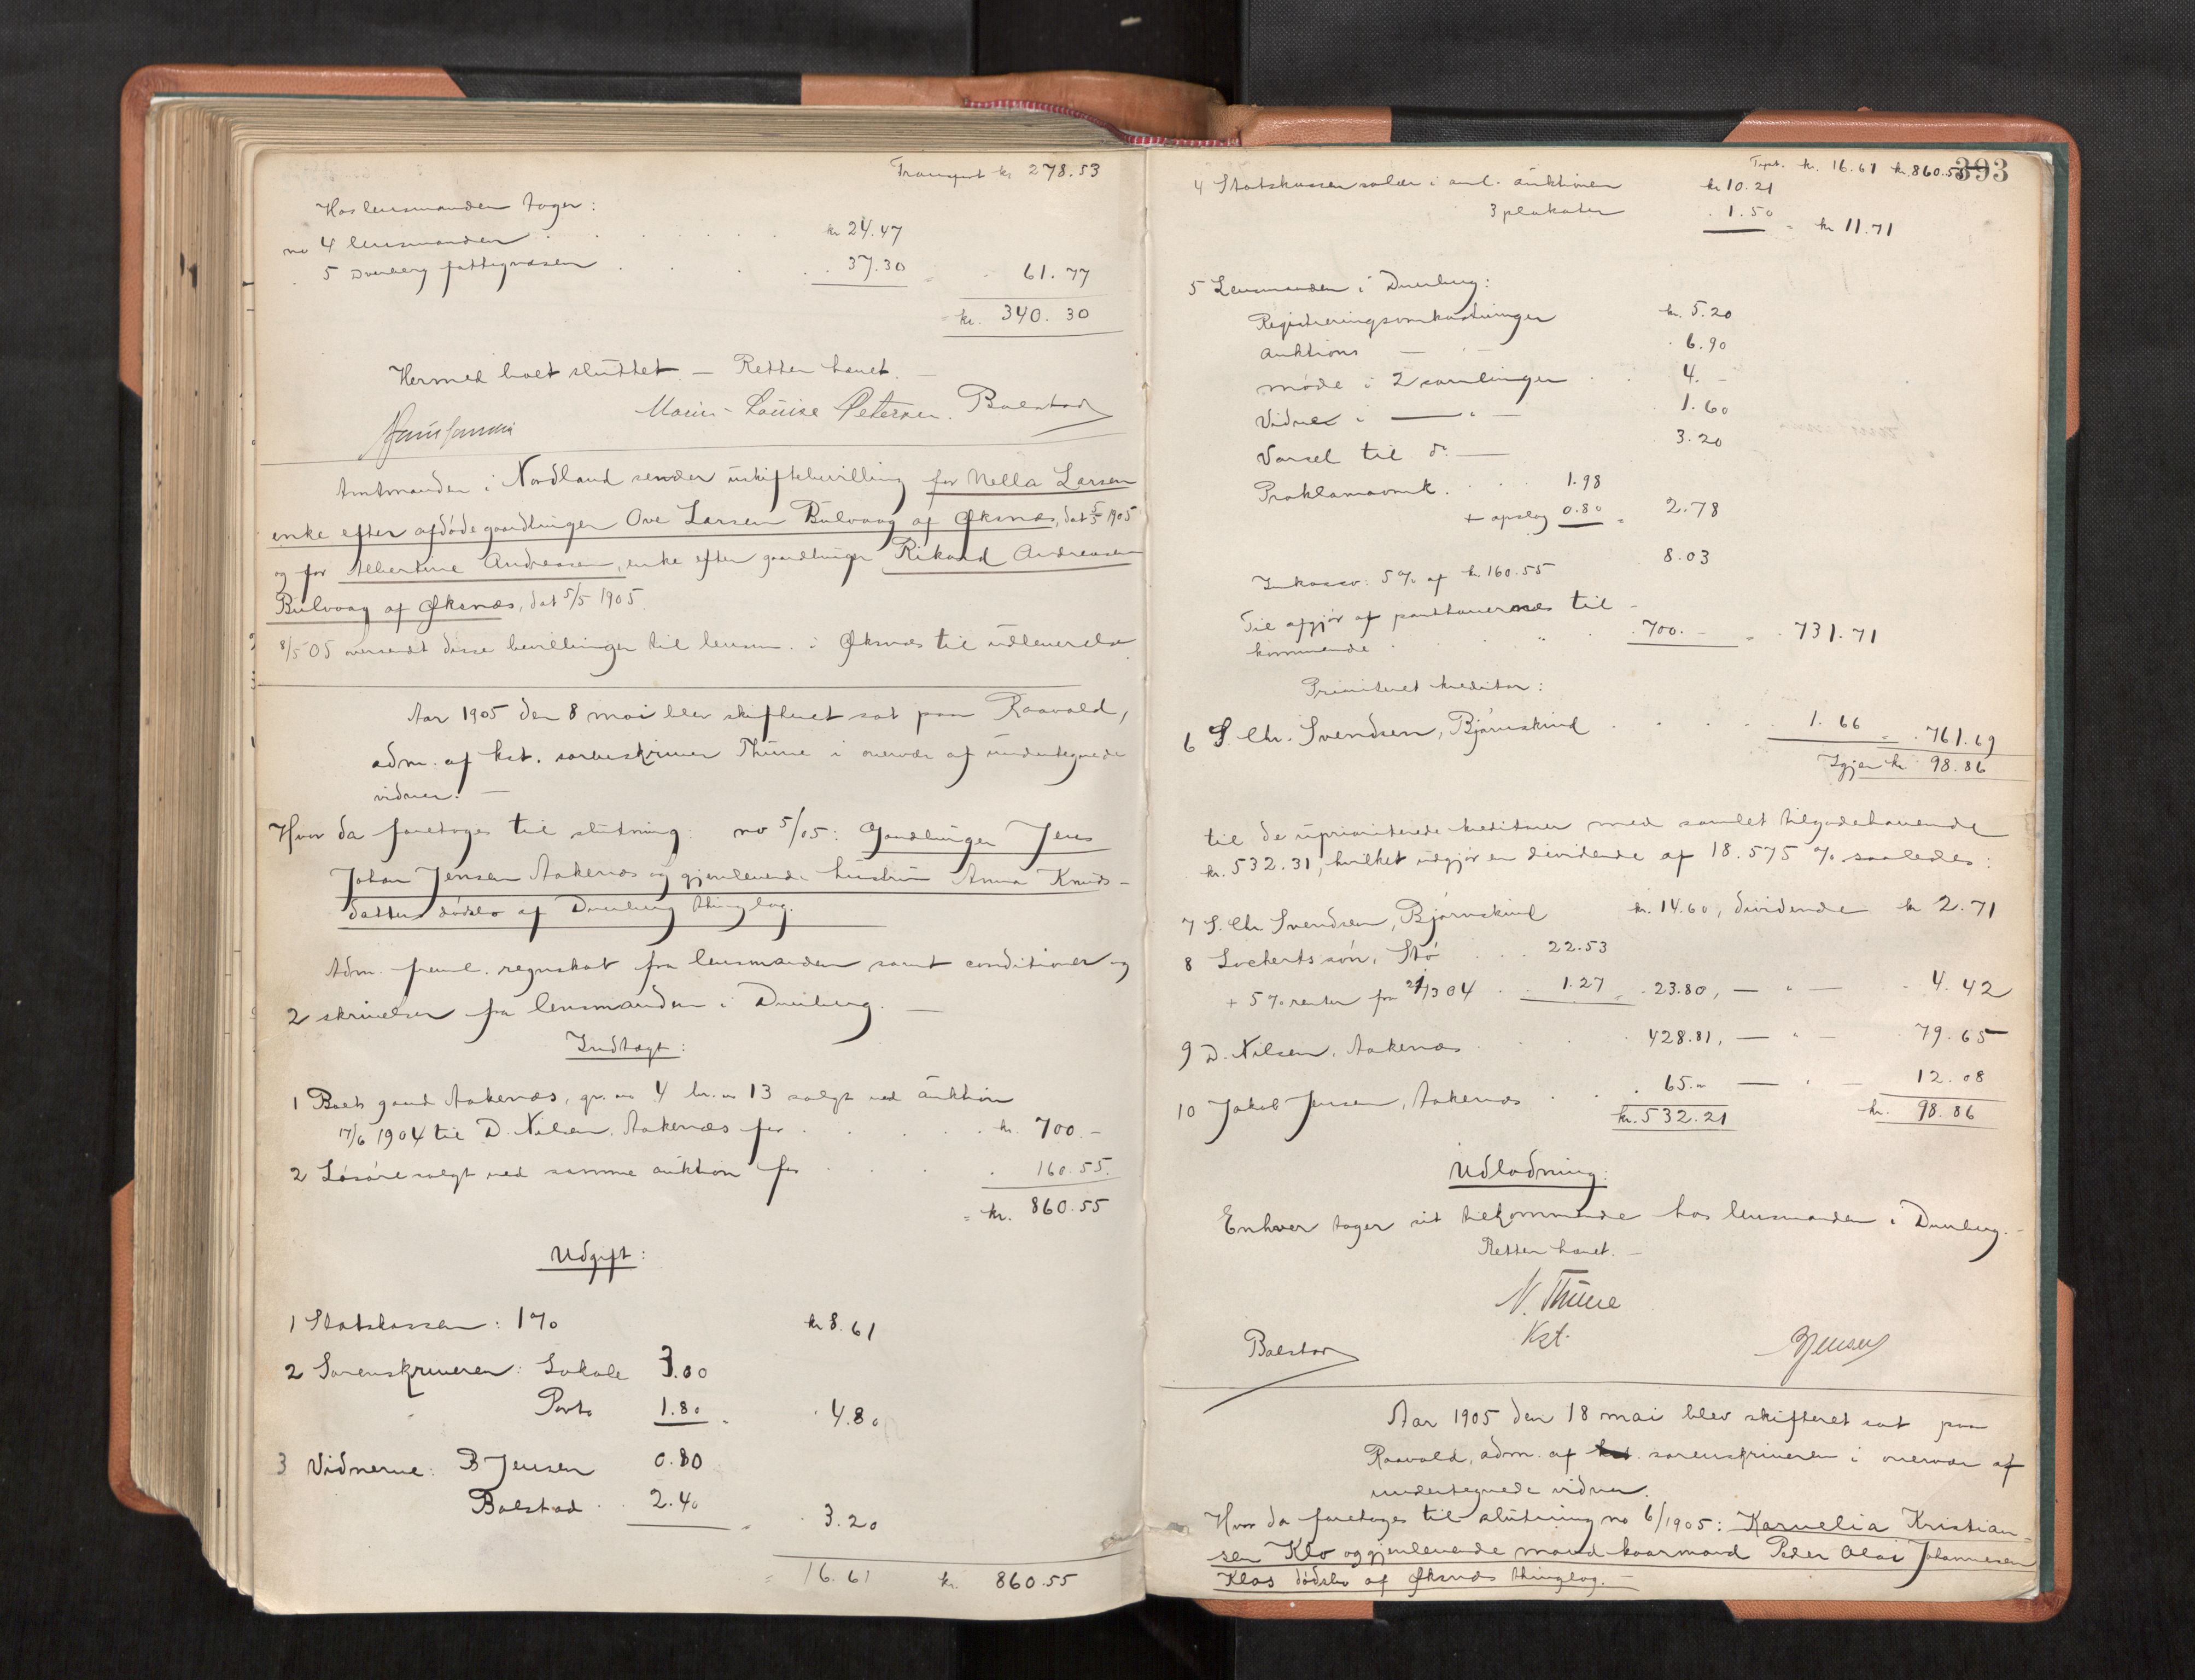 Transport kr 278.53
Hos lensmanden tager:
no 4 lensmanden kr 24.47
5 Dverberg fattigvæsen 37.30 = 61.77
= kr. 340.30
Hermed boet sluttet. — Retten hævet. —
Marie-Louise Petersen. Bolstad
Amtmanden i Nordland sender uskiftebevilling for Nella Larsen
enke efter afdøde gaardbruger Ove Larsen Bulvaag af Øksnes, dat 5/5 1905
og for Albertine Andreasen, enke efter gaardbruger Rikard Andreasen
Bulvaag af Øksnes, dat 5/5 1905.
8/5 05 oversendt disse bevillinger til lensm. i Øksnes til udleverelse
Aar 1905 den 8 mai blev skifteret sat paa Raavold,
adm. af kst. sorenskriver Thüne i overvær af undertegnede
vidner. —
Hvor da foretoges til slutning: no 5/05: Gaardbruger Jens
Johan Jensen Aakenes og gjenlevende hustru Anna Knuds-
datters dødsbo af Dverberg thinglag.
Adm. freml. regnskab fra lensmanden samt conditioner og
2 skrivelser fra lensmanden i Dverberg. —
Indtægt:
1 Boets gaard Aakenes, gr. no 4 br. no 13 solgt ved auktion
17/6 1904 til D. Nilsen, Aakenes for kr. 700.-
2 Løsøre solgt ved samme auktion for 160.55.
= kr. 860.55
Udgift:
1 Statskassen: 1% kr 8.61
2 Sorenskriveren: Lokale 3.00
Porto 1.80 = 4.80
3 Vidnerne: B Jensen 0.80
Bolstad 2.40 = 3.20
= 16.61 kr. 860.55
Tspt. kr. 16.61 kr. 860.55 393
4 Statskassen salær i anl. auktionen kr 10.21
3 plakater 1.50 = kr 11.71
5 Lensmanden i Dverberg:
Registreringsomkostninger kr. 5.20
Auktions — 6.90
møde i 2 samlinger 4. -
Vidner i — " — 1.60
Varsel til do — 3.20
Proklamaomk. 1.98
+ opslag 0.80 = 2.78
Inkasso: 5% af kr. 160.55 8.03
Til afgjør af panthavernes til-
kommende 700. - = 731.71
Prioriteret kreditor:
6 S. Chr. Svendsen, Bjørnskind 1.66 = 761.69
Igjen kr 98.86
til de uprioriterede kreditorer med samlet tilgodehavende
kr. 532.31, hvilket udgjør en dividende af 18.575 % saaledes:
7 S. Chr Svendsen, Bjørnskind kr. 14.60, dividende kr 2.71
8 Lockerts søn, Stø 22.53
+ 5% renter fra 21/3 04 1.27 = 23.80, — " — 4.42
9 D. Nilsen, Aakenes 428.81, — " — 79.65
10 Jakob Jensen, Aakenes 65.- — " — 12.08
kr. 532.21 kr. 98.86
Udlodning:
Enhver tager sit tilkommende hos lensmanden i Dverberg. -
Retten hævet. —
N. Thüne
Kst.
Bolstad BJensen
Aar 1905 den 18 mai blev skifteret sat paa
Raavold, adm. af kst. sorenskriveren i overvær af
undertegnede vidner.
Hvor da foretoges til slutning no 6/1905: Karnelia Kristian-
sen Klo og gjenlevende mand kaarmand Peder Olai Johannesen
Klos dødsbo af Øksnes thinglag. —